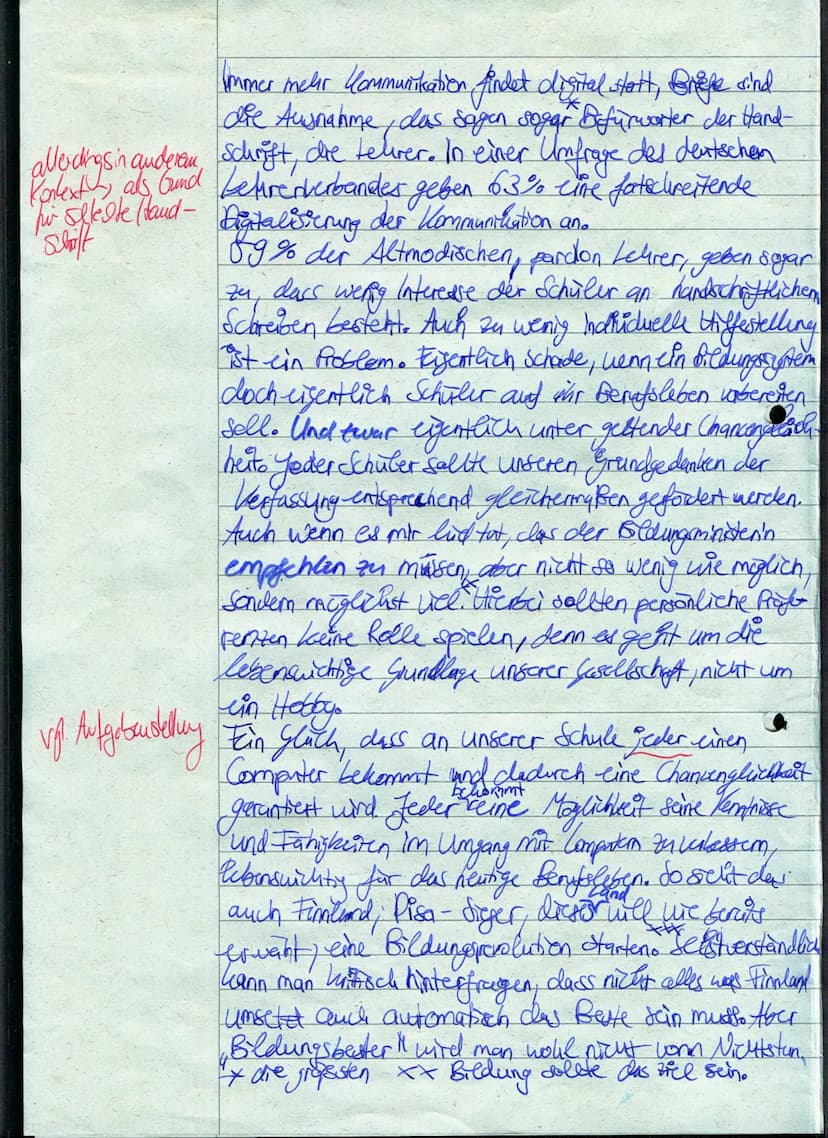 Immer mehr Kommunikation findet digital statt, Briefe sind
die Ausnahme, das sagen sogar * Befürworter der Hand-
schrift, die Lehrer. In einer Umfrage des deutschen
Lehrerverbandes geben 63% eine fortschreitende
Digitalisierung der Kommunikation an.
allerdings in anderem
Kontext, als Grund
für schlechte Hand-
schrift
59% der Altmodischen, pardon Lehrer, geben sogar
zu, dass wenig Interesse der Schüler an handschriftlichem
Schreiben besteht. Auch zu wenig individuelle Hilfestellung
ist ein Problem. Eigentlich schade, wenn ein Bildungssystem
doch eigentlich Schüler auf ihr Berufsleben vorbereiten
soll. Und zwar eigentlich unter geltender Chancengleich-
heit. Jeder Schüler sollte unseren Grundgedanken der
Verfassung entsprechend gleichermaßen gefördert werden.
Auch wenn es mir leid tut, das der Bildungsministerin
empfehlen zu müssen, aber nicht so wenig wie möglich,
sondern möglichst viel. ** Hierbei sollten persönliche Präfe-
renzen keine Rolle spielen, denn es geht um die
lebenswichtige Grundlage unserer Gesellschaft, nicht um
ein Hobby.
vgl. Aufgabenstellung
Ein Glück, dass an unserer Schule jeder einen
Computer bekommt und dadurch eine Chancengleichheit
garantiert wird. Jeder bekommt eine Möglichkeit seine Kenntnisse
und Fähigkeiten im Umgang mit Computern zu verbessern,
lebenswichtig für das heutige Berufsleben. So sieht das
auch Finnland, Pisa-Sieger, dieses Land will wie bereits
erwäht, eine Bildungsrevolution starten. Selbstverständlich
kann man kritisch hinterfragen, dass nicht alles was Finnland
umsetzt auch automatisch das Beste sein muss. Aber
„Bildungsbester" wird man wohl nicht vom Nichtstun.
* die grössten ** Bildung sollte das Ziel sein.